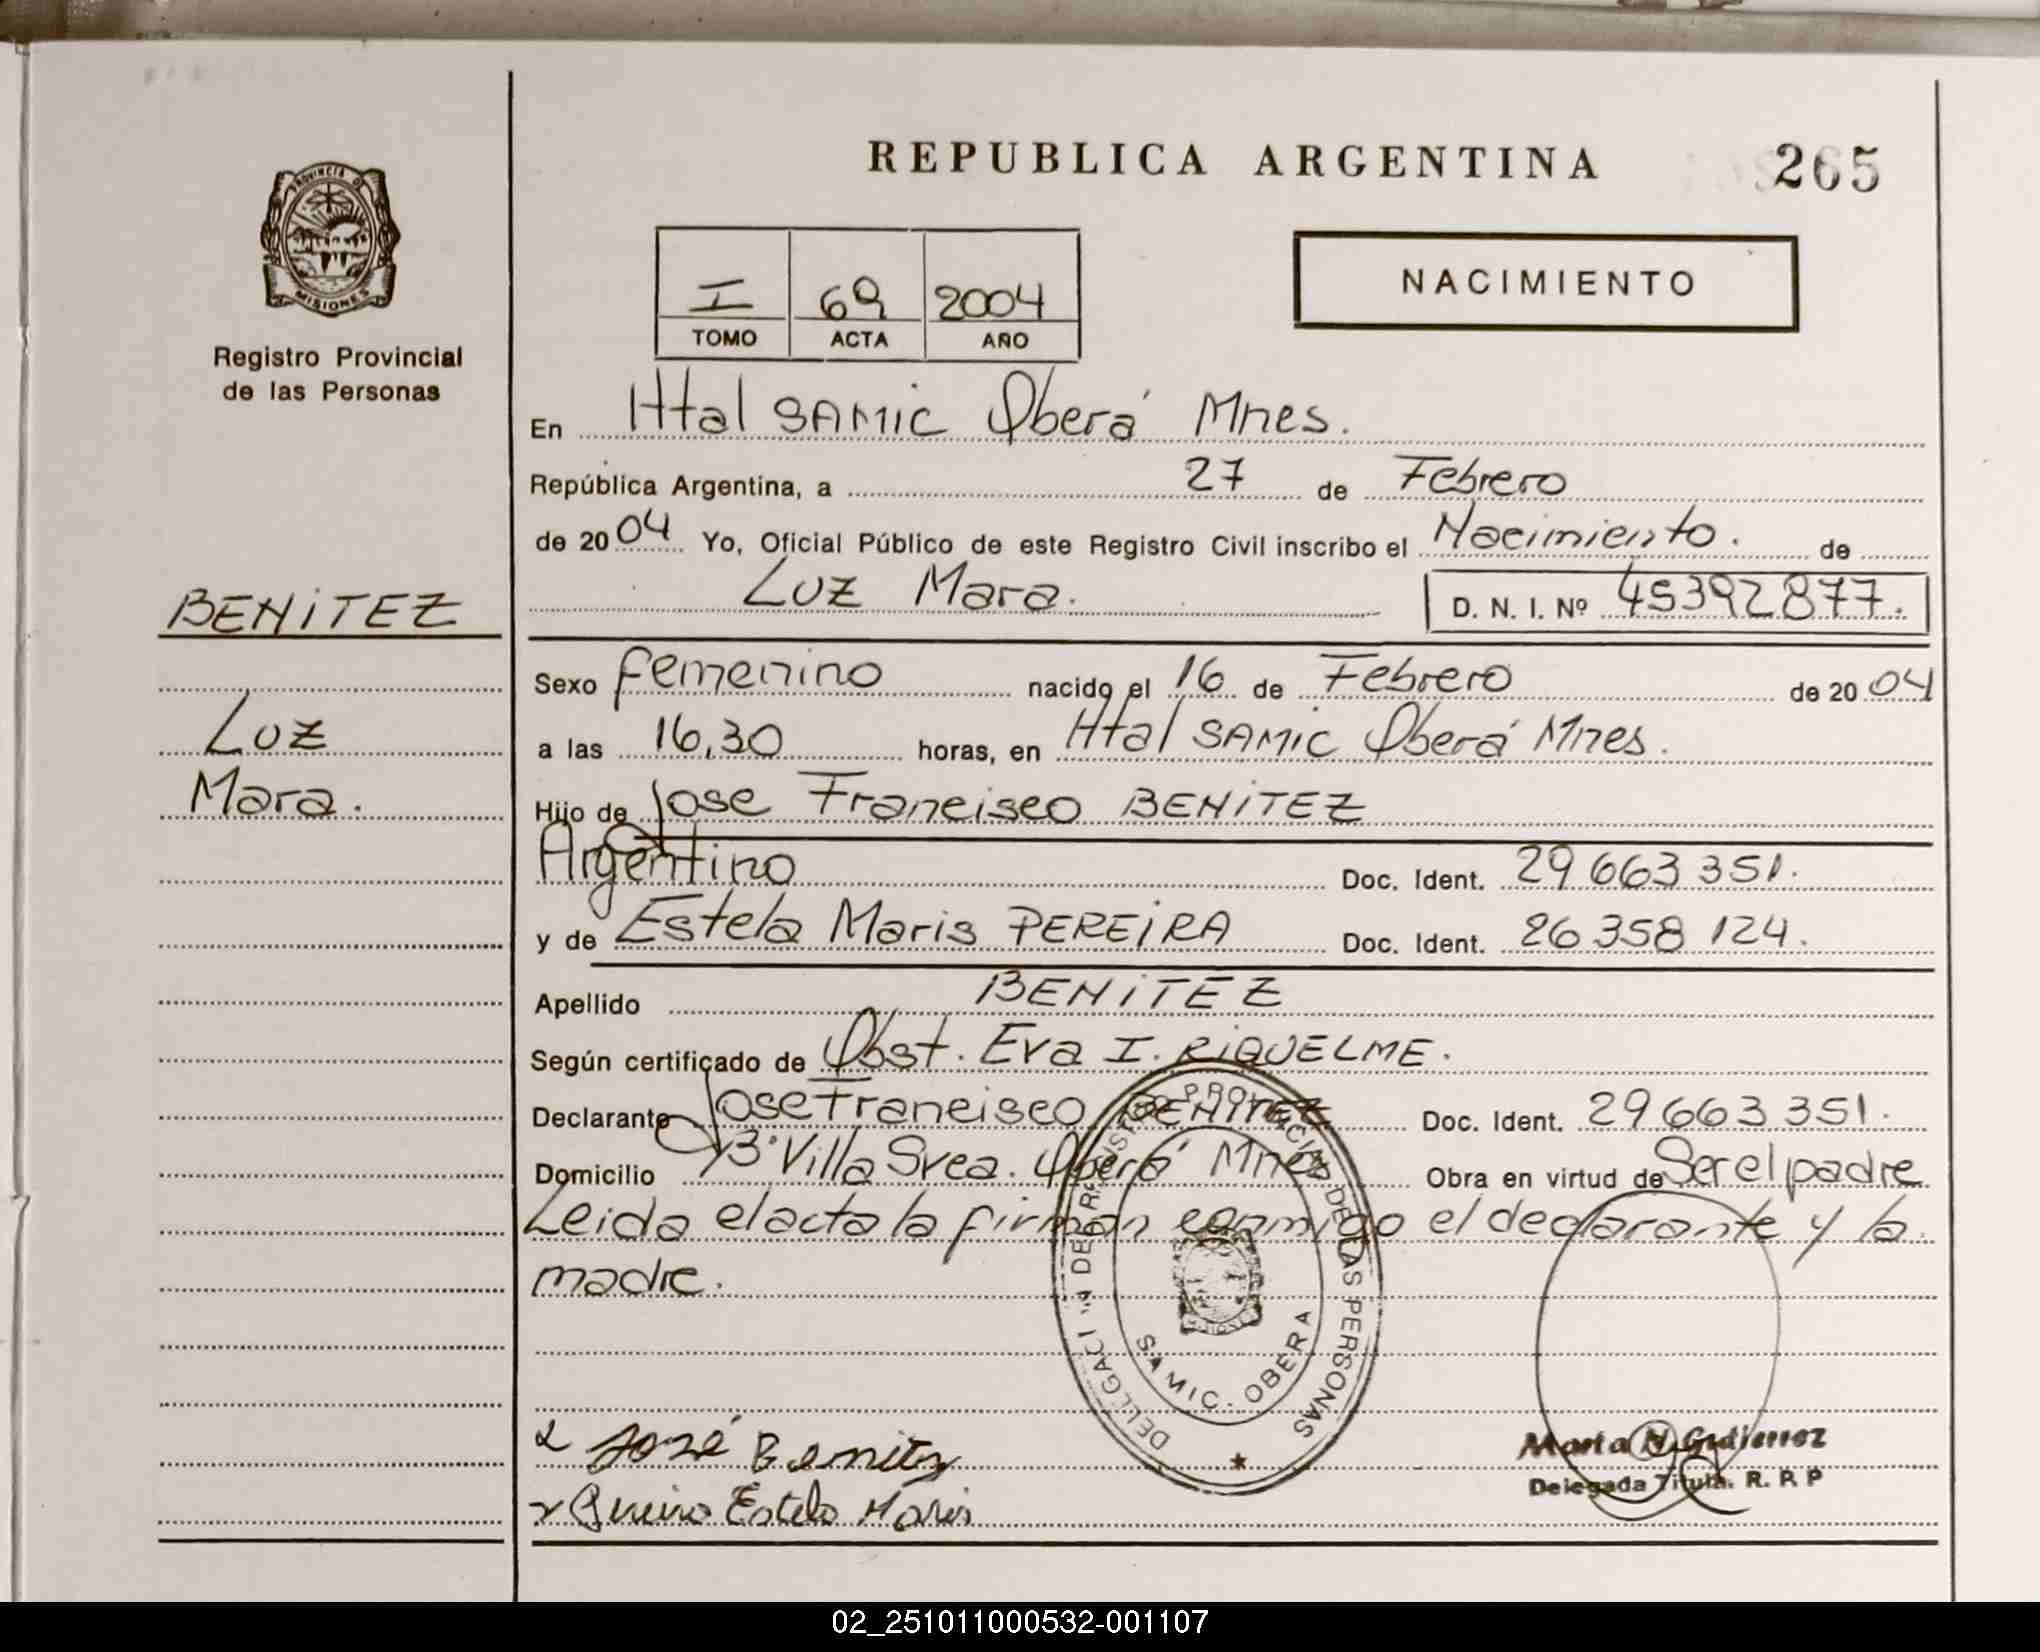 REPUBLICA ARGENTINA
265
PROVINCIA DE
MISIONES
Registro Provincial
de las Personas
I 69 2004
TOMO ACTA AÑO
NACIMIENTO
En Htal SAMIC Oberá Mnes.
República Argentina, a 27 de Febrero
de 2004 Yo, Oficial Público de este Registro Civil inscribo el Nacimiento. de
Luz Mara. D. N. I. Nº 45392877.
BENITEZ
Luz
Mara.
Sexo Femenino nacido el 16 de Febrero de 2004
a las 16,30 horas, en Htal SAMIC Oberá Mnes.
Hijo de Jose Francisco BENITEZ
Argentino Doc. Ident. 29 663 351.
y de Estela Maris PEREIRA Doc. Ident. 26 358 124.
Apellido BENITEZ
Según certificado de Obst. Eva I. RIQUELME.
Declarante Jose Francisco BENITEZ Doc. Ident. 29 663 351.
Domicilio Villa Svea. Oberá Mnes Obra en virtud de Ser el padre
Leida el acta la firman conmigo el declarante y la
madre.
REGISTRO PROVINCIAL DE LAS PERSONAS
SAMIC - OBERA
José Benitez
Estela Maris
Marta N. Gutierrez
Delegada Titular. R. P. P
02_251011000532-001107